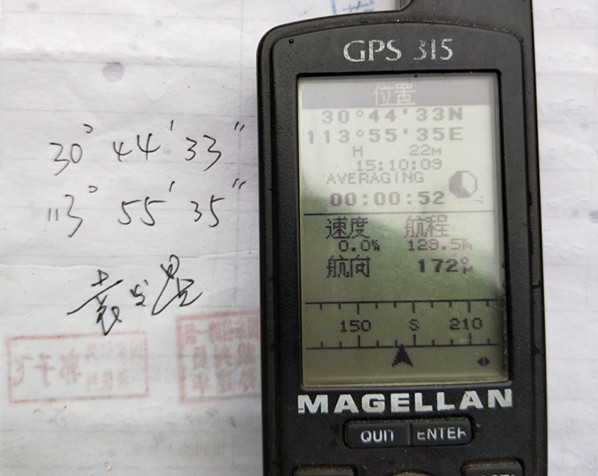 30° 44' 33"
113° 55' 35"
GPS 315
位置
30°44'33N
113°55'35E
H 22M
15:10:09
AVERAGING
00:00:52
速度 航程
0.0% 129.5%
航向 172°M
150 S 210
MAGELLAN
QUIT ENTER